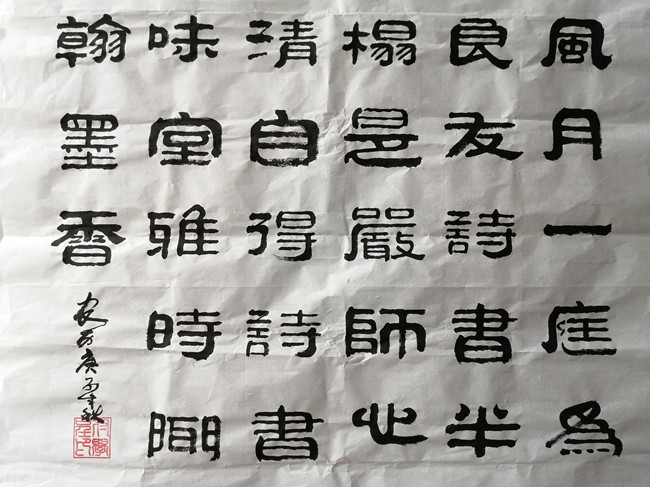 風月一庭為
良友詩書半
榻是嚴師心
清自得詩書
味室雅時聞
翰墨香
庚子年秋